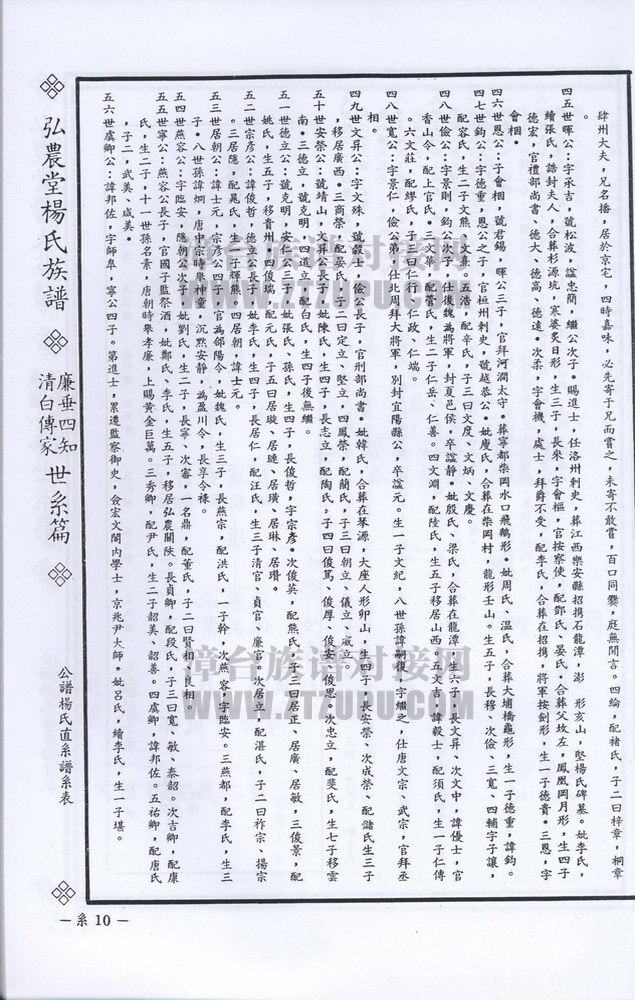 肆州大夫，兄名播，居於京宅，四時嘉味，必先寄于兄而嘗之，未寄不敢嘗，百口同爨，庭無閒言。四綸，配褚氏，子二曰梓章，桐章
。
四五世暉公：字承吉，號松波，諡忠簡，繼公次子。賜進士，任洛州刺史，葬江西樂安縣招携石龍潭，澎　形亥山，堅楊氏碑墓。妣李氏，
續張氏，誥封夫人，合葬杉源坑，寒婆炙日形，生三子，長來，字會樞，官按察使，配鄧氏、晏氏，合葬父坟左，鳳凰岡月形，生四子
德宏，官禮部尚書、德大、德高、德遠。次柔，字會機，處士，拜爵不受，配李氏，合葬在招携，將軍按劍形，生一子德貴。三恩，字
會楓。
四六世恩公：子會楓，號君錫，暉公三子，官拜河澗太守。葬寧都柴岡水口飛鵝形。妣周氏、温氏，合葬大埔橋龜形，生一子德重，諱鈞。
四七世鈞公：字德重，恩公之子，官桓州刺史，號越恭公。妣庾氏，合葬在柴岡村，龍形壬山。生五子，長穆、次儉、三寬、四輔字子讓，
配容氏，生二子文熊、文熹。五浩，配辛氏，子三曰文度、文炳、文慶。
四八世儉公：字景則，鈞公次子，仕後魏為將軍，封夏邑侯，卒諡靜。妣殷氏、梁氏，合葬在龍潭，生六子，長文昇、次文中，諱優士，官
香山令，配上官氏。三文華，配管氏，生二子仁岳、仁善。四文淵，配陸氏，生五子移居山西。五文吉，諱毅士，配須氏，生一子仁傳
。六文莊，配繆氏，子三曰仁行、仁政、仁端。
四八世寬公：字景仁，儉公弟，仕北周拜大將軍，別封宜陽縣公，卒諡元。生一子文紀，八世孫諱嗣復，字繼之，仕唐文宗、武宗，官拜丞
相。
四九世文昇公：字文殊，號毅士，儉公長子，官刑部尚書。妣韓氏，合葬在琴源，大座人形卯山，生四子，長安榮、次成榮、配儲氏生三子
，移居廣西。三商榮，配晏氏，子二曰定立、堅立，四鳳榮，配藺氏，子三曰朝立、儀立、咸立。
五十世安榮公：號靖山，文昇公長子，妣陳氏，生四子，長志立，配陶氏，子四曰俊篤、俊厚、俊安、俊思。次忠立，配斐氏，生七子移雲
南。三德立，號克明，四道立，配白氏，生四子後無繼。
五一世德立公：號克明，安仁公三子，妣張氏、孫氏，生四子，長俊哲，字宗彦。次俊英，配熊氏，子三曰居正、居廣、居敏，三俊景，配
姚氏，生五子，移貴州。四俊瑞，配元氏，子五曰居璇、居璉、居璜、居琳、居瓚。
五二世宗彦公：諱俊哲，德立公長子，妣李氏，生四子，長居仁，配汪氏，生三子清官、貞官、廉官。次居立，配湛氏，子二曰祚宗、揚宗
。三居隱，配晁氏，生二子輝熊。四居朝，諱士元。
五三世居朝公：諱士元，宗彦公四子，官為郃陽令，妣魏氏，生三子，長燕宗，配洪氏，一子幹，次燕容，字臨安。三燕都，配李氏，生三
子。八世孫諱炯，唐中宗時舉神童，沉黙安靜，為盈川令，長享令禄。
五四世燕容公：字臨安，隱朝公次子，妣劉氏，生二子，長寧、次審，一名鼎，配董氏，子二曰賢相、良相。
五五世寧公：燕容公長子，官國子監祭酒，妣鄭氏、李氏，生五子，移居弘農關陝。長貞卿，配段氏，子三曰寬、敏、泰韶。次吉卿，配康
氏，生二子，十一世孫名素，唐朝時舉孝廉，上賜黃金巨萬。三秀卿，配尹氏，生二子韶美、韶善。四虞卿，諱邦佐。五祐卿，配唐氏
，子二，武美、咸美。
五六世虞卿公：諱邦佐，字師阜，寧公四子。第進士，累遷監察御史，僉宏文閣内學士，京兆尹大師。妣呂氏，續李氏，生一子堪。
弘農堂楊氏族譜
廉垂四知
清白傳家
世系篇
公譜楊氏直系譜系表
－系 10－
漳台族谱对接网
WWW.ZTZUPU.COM
漳台族谱对接网
WWW.ZTZUPU.COM